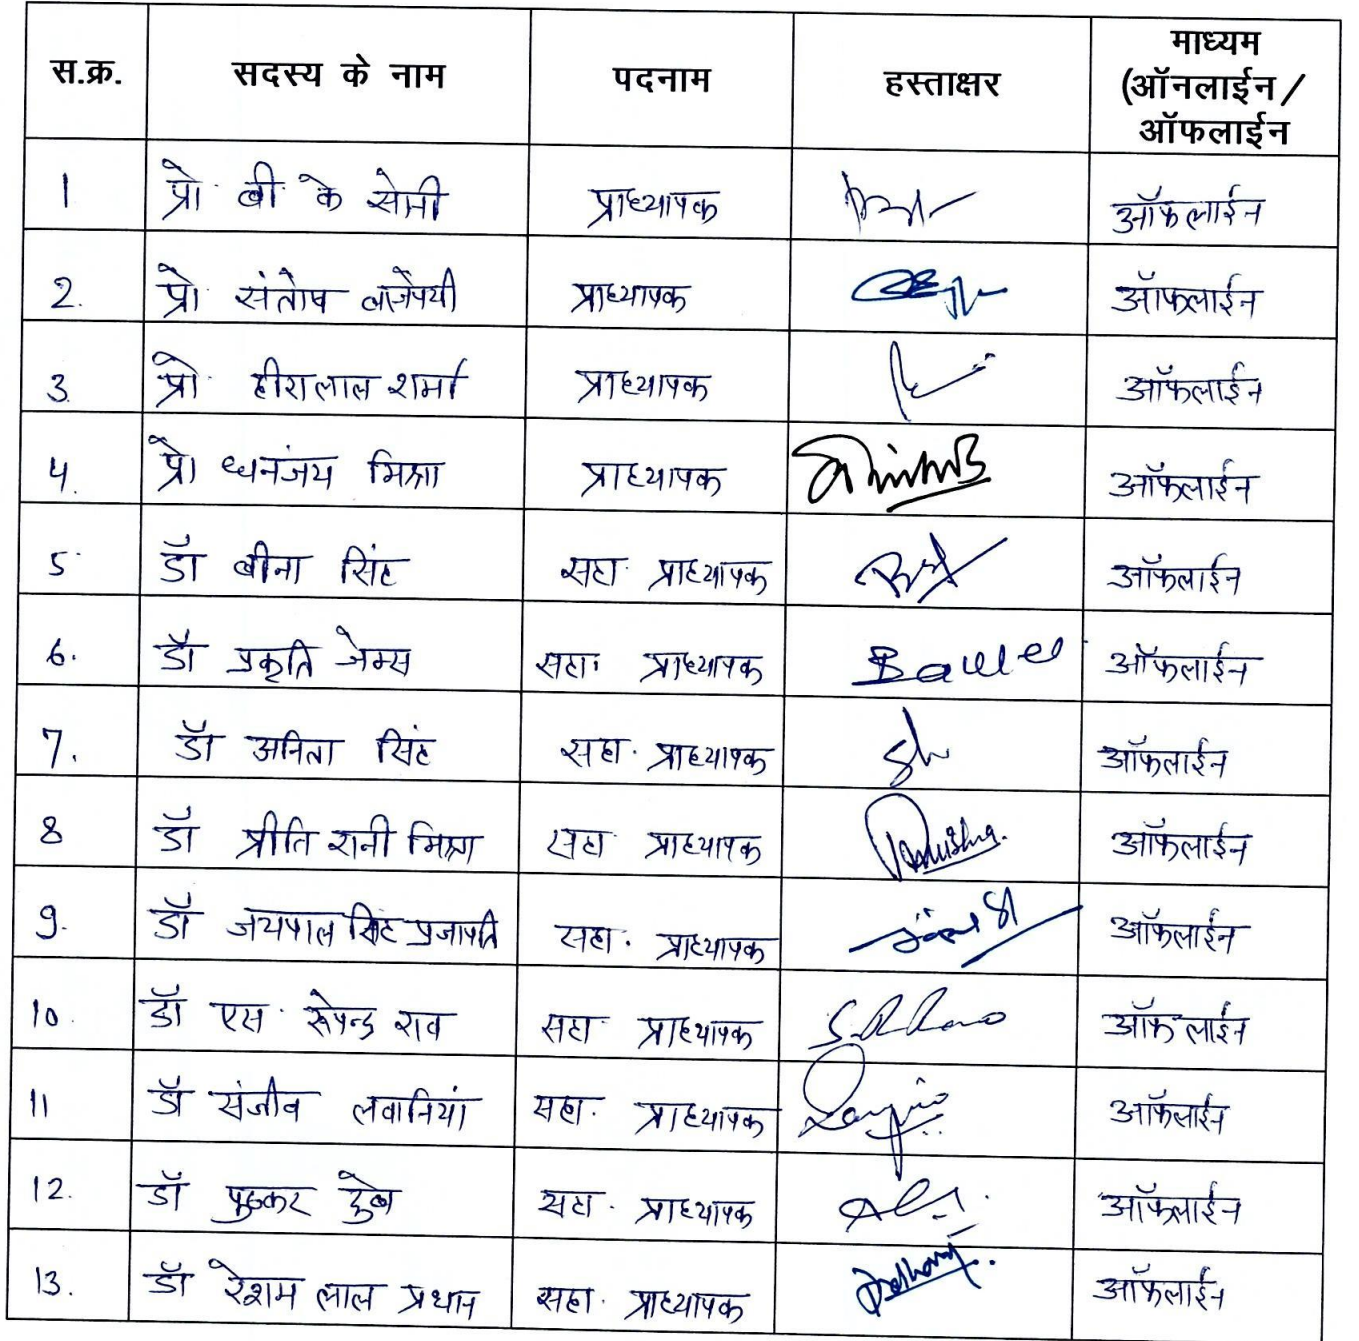 स.क्र. सदस्य के नाम पदनाम हस्ताक्षर माध्यम (ऑनलाईन/ ऑफलाईन
1 प्रो. बी. के सोनी प्राध्यापक ऑफलाईन
2. प्रो संतोष बाजेपयी प्राध्यापक ऑफलाईन
3. प्रो. हीरालाल शर्मा प्राध्यापक ऑफलाईन
4. प्रो धनंजय मिश्रा प्राध्यापक ऑफलाईन
5. डॉ बीना सिंह सहा. प्राध्यापक ऑफलाईन
6. डॉ प्रकृति जेम्स सहा. प्राध्यापक ऑफलाईन
7. डॉ अनिता सिंह सहा. प्राध्यापक ऑफलाईन
8 डॉ प्रीति रानी मिश्रा सहा. प्राध्यापक ऑफलाईन
9. डॉ जयपाल सिंह प्रजापति सहा. प्राध्यापक ऑफलाईन
10. डॉ एस. रूपेन्द्र राव सहा. प्राध्यापक S.R.Rao ऑफलाईन
11 डॉ संजीव लवानियां सहा. प्राध्यापक ऑफलाईन
12. डॉ पुष्कर दुबे सहा. प्राध्यापक ऑफलाईन
13. डॉ रेशम लाल प्रधान सहा. प्राध्यापक ऑफलाईन